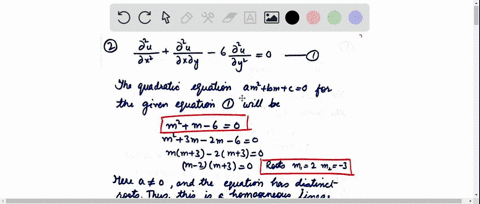 ② ∂²u/∂x² + ∂²u/∂x∂y - 6 ∂²u/∂y² = 0 —①
The quadratic equation am²+bm+c=0 for
the given equation ① will be
m²+m-6=0
m²+3m-2m-6=0
m(m+3)-2(m+3)=0
(m-2)(m+3)=0 Roots m₁=2 m₂=-3
Here a≠0, and the equation has distinct
roots. Thus, this is a homogeneous linear